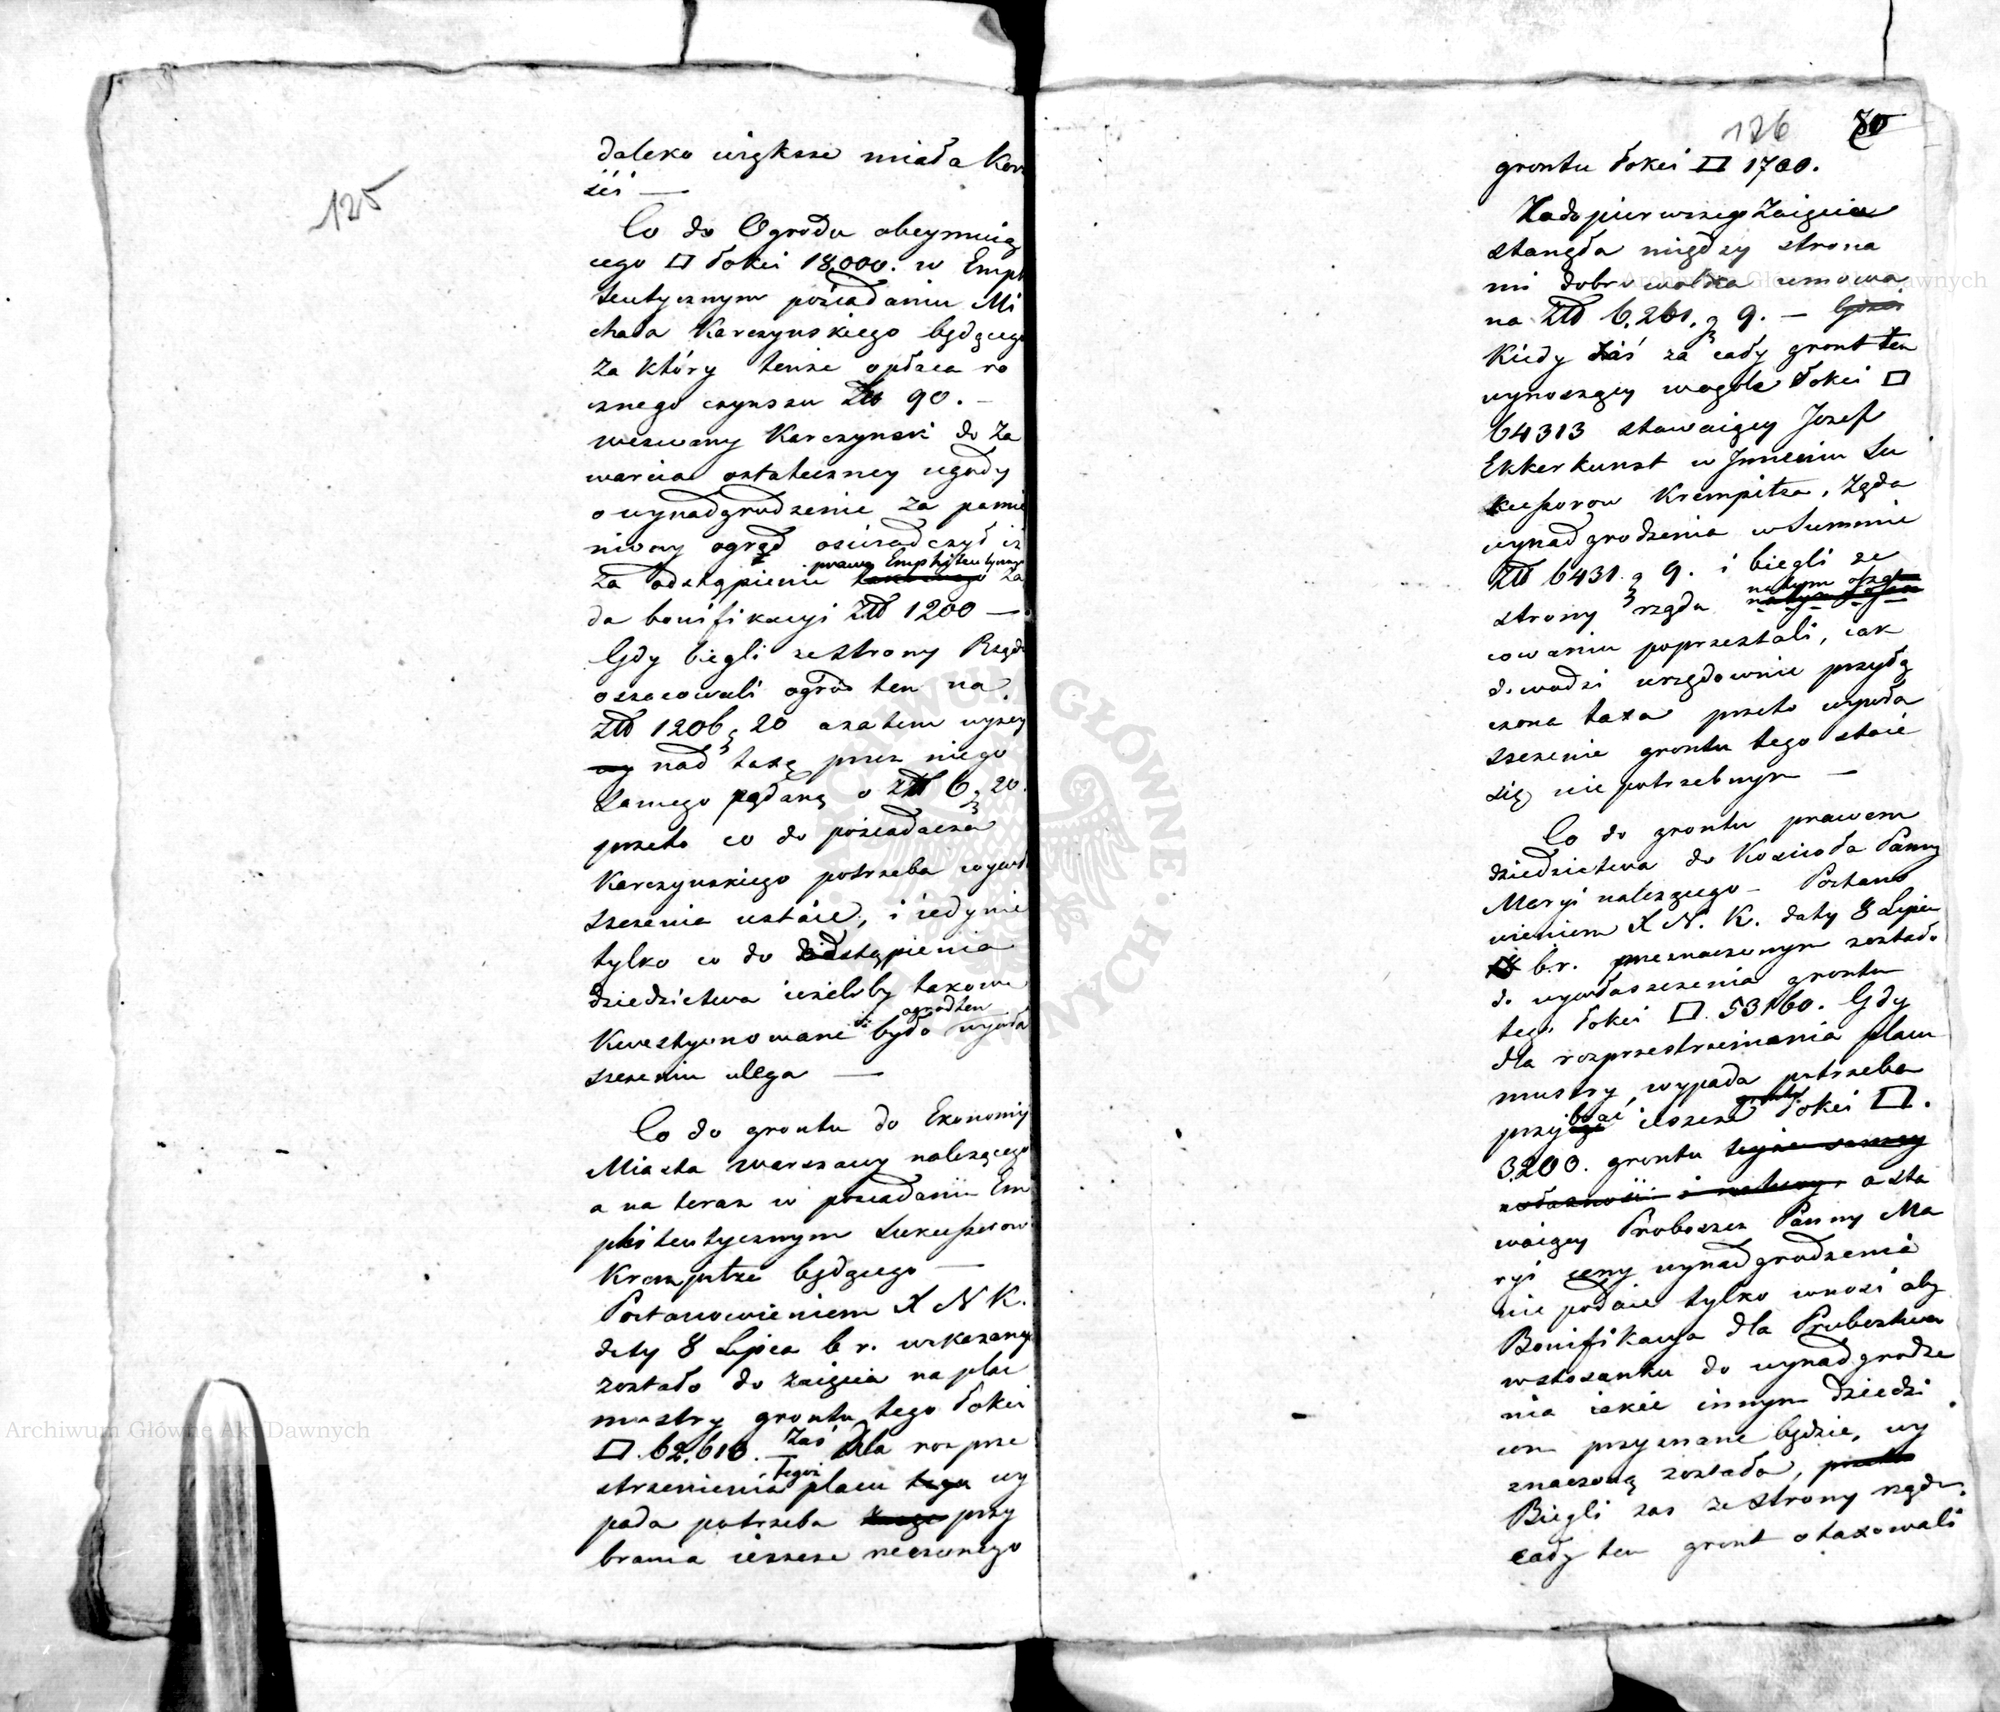 125
daleko większe miała Kor
zii —
Co do Ogrodu obeymuią
cego □ Łokci 18,000. w Emph
teutycznym posiadaniu Mi
chała Karczynskiego będącego
za który tenże opłaca ro
cznego czynszu Złl 90. —
wezwany Karczynski do za
warcia ostateczney ugody
o wynadgrodzenie za pomie
niony ogrod oswiadczył iż
prawa Emphiteutyczne
za odstąpienie żą
da bonifikacyi Złl 1200 —
Gdy biegli ze strony Rządu
oszacowali ogrod ten na
Złl 1206 g 20 azatem wyzey
nad taxę przez niego
samego podaną o Złl 6 g 20.
przeto co do posiadacza
Karczynskiego potrzeba wywł
szczenia ustaie, i iedynie
tylko co do odstąpienia
dziedzictwa ieżeliby takowe
ogrod ten
kwestyonowane było wywła
szczeniu ulega —
Co do gruntu do Ekonomij
Miasta Warszawy należącego
a na teraz w posiadaniu Em
phiteutycznym Sukcessorow
Krempitza będącego —
Postanowieniem X N K.
daty 8 Lipca b r. wskazany
zostało do zaięcia na plac
mustry gruntu tego Łokci
□. 62.613. zaś dla rozprze
tegoż
strzenienia placu tego wy
pada potrzeba przy
brania ieszcze rzeczonego
126 70
gruntu Łokci □ 1700.
Za do pierwszego zaięcia
stanęła między strona
mi dobrowolna umowa
na Złl 6,261, g 9. —
Kiedy zaś za cały grunt ten
wynoszący wogole Łokci □
64313 stawaiący Jozef
Ekkerkunst w Imieniu Su
kcessorow Krempitza, żąda
wynadgrodzenia w Summie
Złl 6431 g 9. i biegli ze
na tym osza
strony rządu
cowaniu poprzestali, iak
dowodzi urzędownie przyłą
czona taxa przeto wywła
szczenie gruntu tego staie
się nie potrzebnym —
Co do gruntu prawem
dziedzictwa do Koscioła Panny
Maryi należącego — Postano
wieniem X N. K. daty 8 Lipca
b.r. przeznaczonym zostało
do wywłaszczenia gruntu
tego Łokci □. 53160. Gdy
dla rozprzestrzenienia placu
mustry, wypada potrzeba
przybrać ieszcze gruntu Łokci □.
3200. gruntu teyże samey
własności i natury, a sta
waiący Proboszcz Panny Ma
ryi ceny wynadgrodzenia
nie podaie tylko wnosi aby
Bonifikacya dla Probostwa
w stosunku do wynadgrodze
nia iakie innym dziedzi
com przyznane będzie, wy
znaczoną została,
Biegli zas ze strony rządu
cały ten grunt otaxowali
Archiwum Główne Akt Dawnych